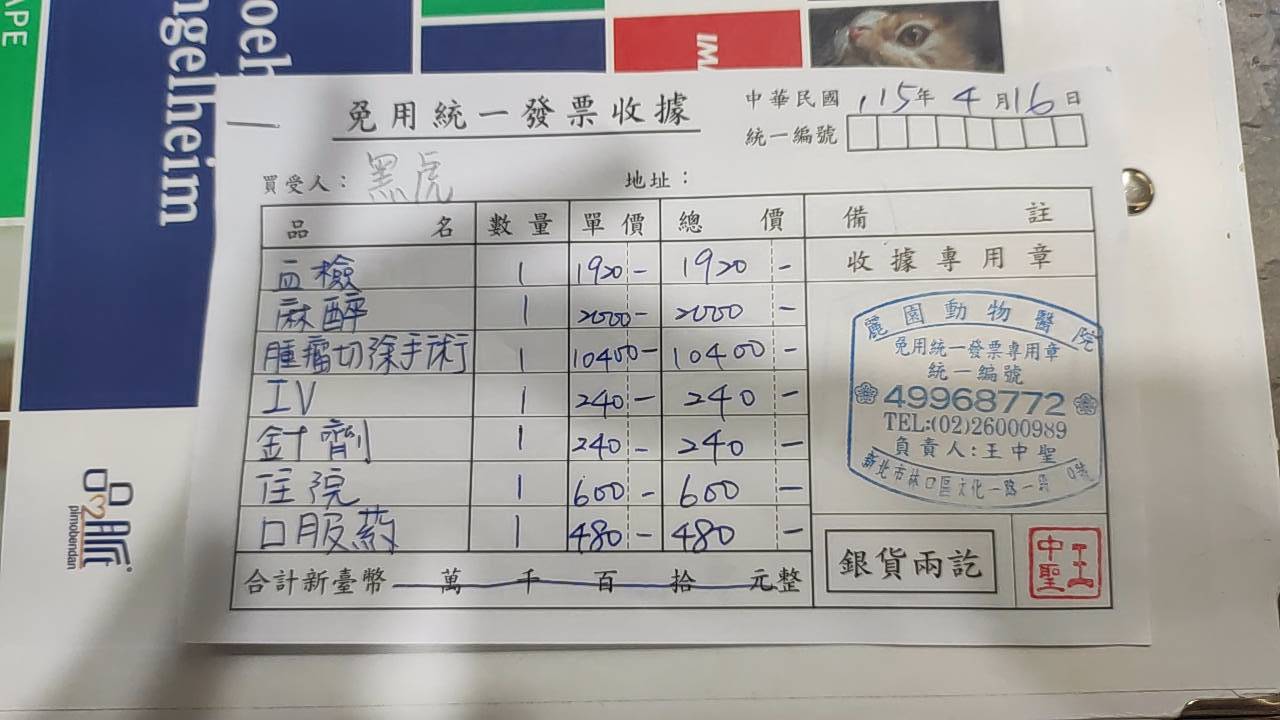 APE
oeh
ngelheim
IM
免用統一發票收據
中華民國 115年 4月16日
統一編號
買受人： 黑虎 地址：
品名 數量 單價 總價 備註
血檢 1 1920- 1920-
收據專用章
麻醉 1 2000- 2000-
腫瘤切除手術 1 10400- 10400-
IV 1 240- 240-
針劑 1 240- 240-
住院 1 600- 600-
口服葯 1 480- 480-
合計新臺幣 萬 千 百 拾 元整
麗園動物醫院
免用統一發票專用章
統一編號
49968772
TEL:(02)26000989
負責人:王中聖
新北市林口區文化一路一段
銀貨兩訖
王中聖
品脈
pimobendan